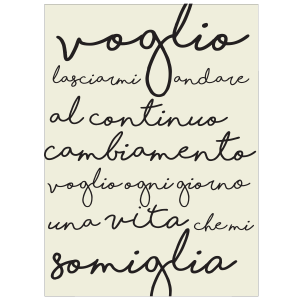 voglio
lasciarmi andare
al continuo
cambiamento
voglio ogni giorno
una vita che mi
somiglia